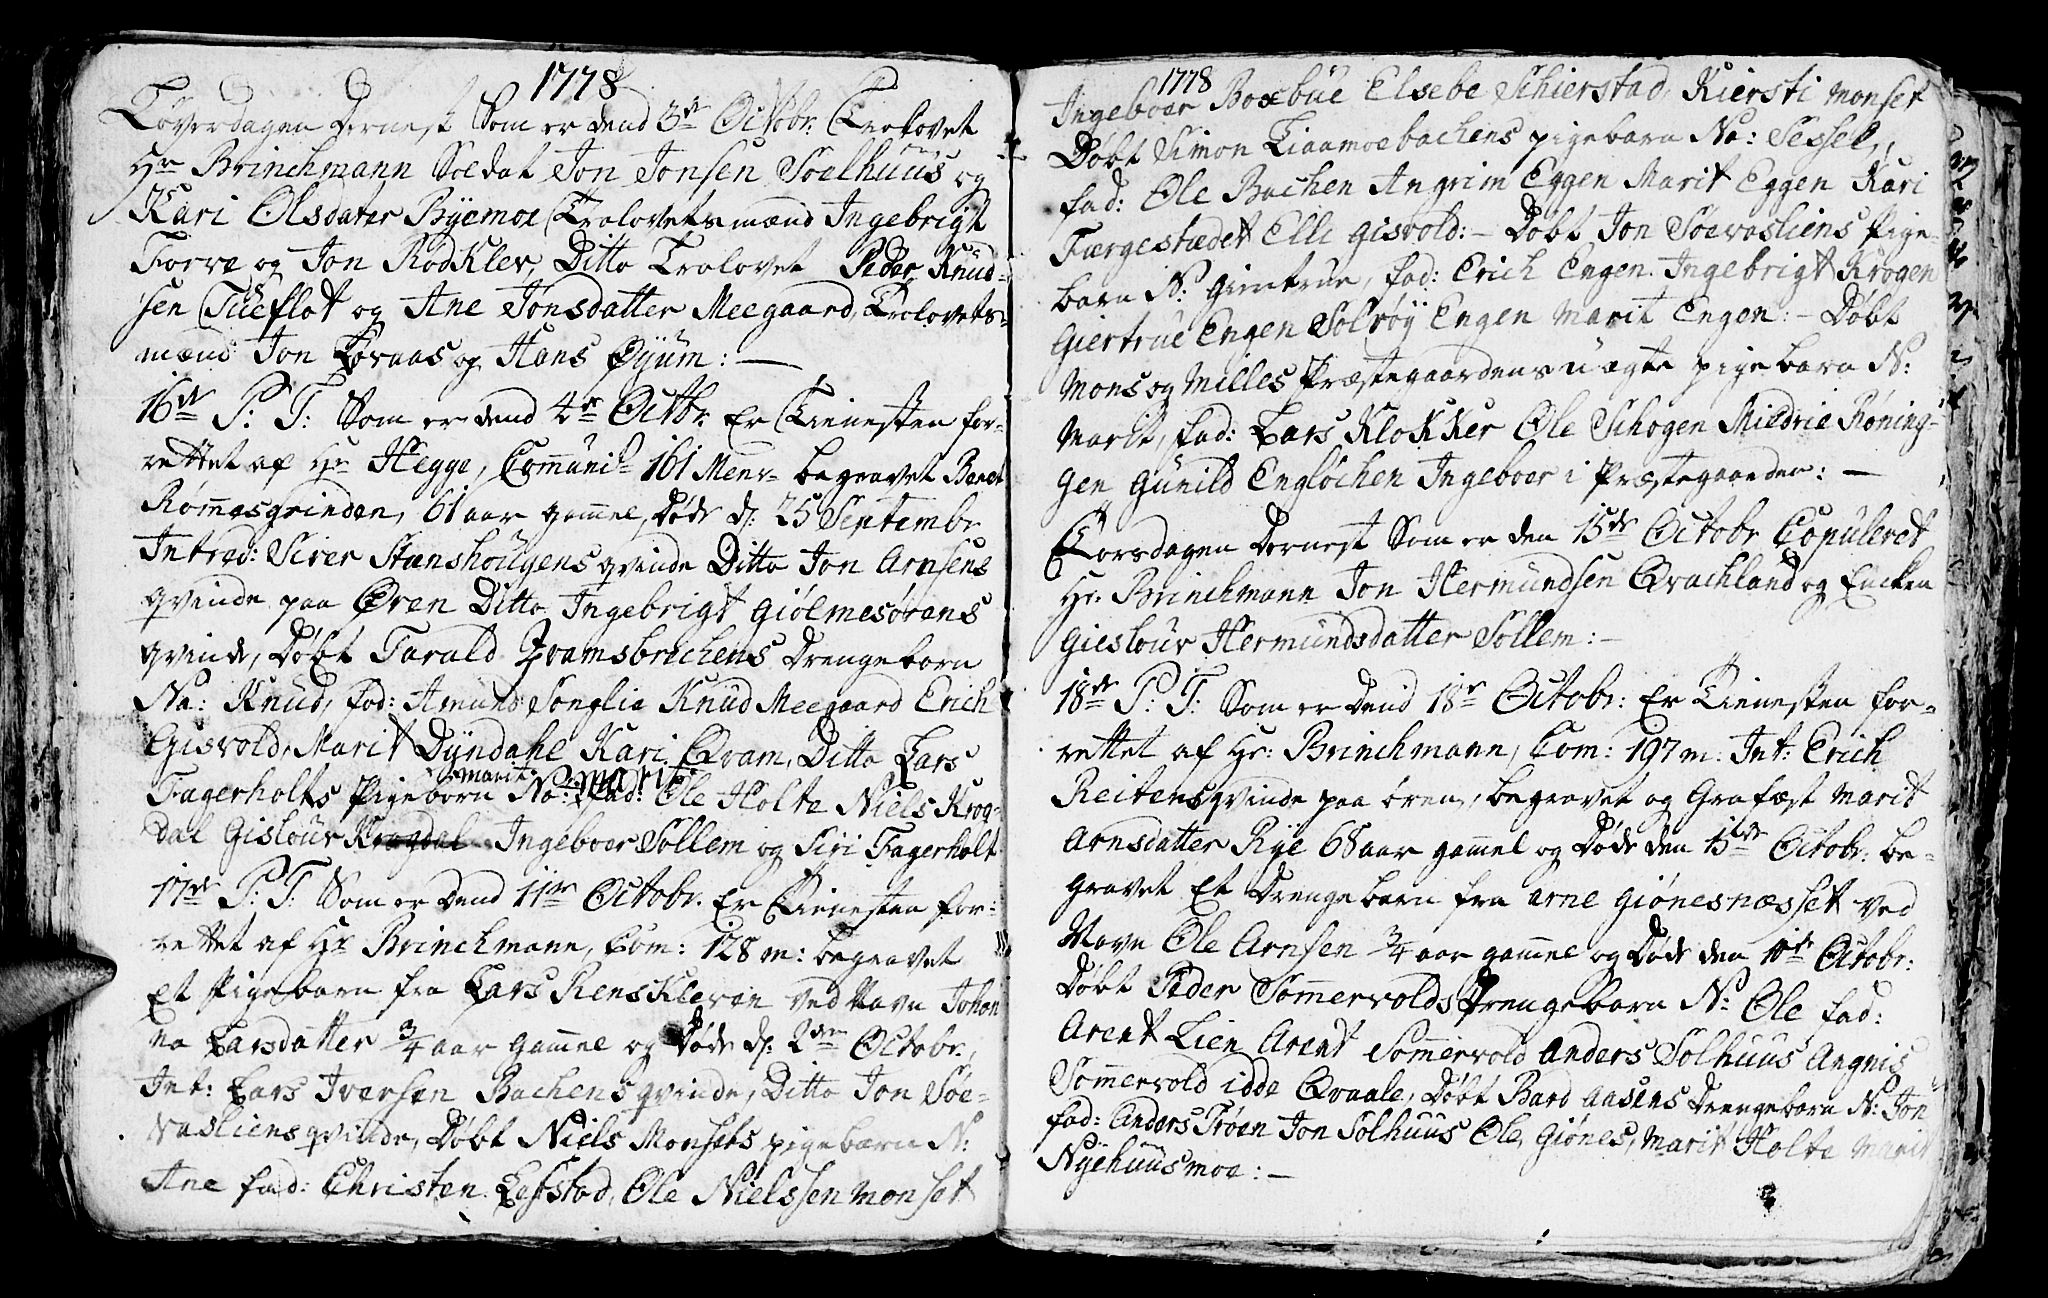 1778
Löverdagen Dernest Som er dend 3de Octobr. Trolovet
Hr Brinchmann Soldat Jon Jonsen Soelhuus og
Kari Olsdater Byemoe Trolovetsmænd Ingebrigt
Forve og Jon Rødklev, Ditto Trolovet Peder Knud-
sen Tueflot og Ane Jonsdatter Meegaard, Trolovets-
mænd Jon Løvaas og Hans Øyum: —
16de P: T: Som er dend 4de Octbr. Er Tienesten for-
rettet af Hr Hegge, Communi: 161 Menr= begravet Beret
Rømmesgrinden, 61 aar gammel, Døde d: 25 Septembr
Introd: Siver Stenshougens qvinde Ditto Jon Arnsens
qvinde paa Øren Ditto Ingebrigt Giölmesörens
qvinde, Döbt Tarald Qvamsbrechens Drengebarn
Na: Knud, fad: Amund Songlie Knud Meegaard Erich
Gisvold, Marit Dyndahl Kari Qvam, Ditto Lars
Fagerholts Pigebarn Marit Na: Marit fad: Ole Holte Niels Krog-
dal Gislour Krogdal Ingeboer Sollem og Siri Fagerholt
17de P: T: Som er Dend 11te Octobr. Er Tienesten for-
rettet af Hr Brinchmann, Com: 128 m: begravet
Et Pigebarn fra Lars Rensklevan ved Navn Johan
na Larsdatter 3/4 aar gammel og Døde d: 2den Octobr.,
Int: Lars Iversen Bachens qvinde, Ditto Jon Söe-
vasliens qvinde, Döbt Niels Monsets pigebarn N:
Ane fad: Christen Lefstad, Ole Nielssen Monset
1778
Ingeboer Boxbue Elsebe Schierstad, Kiersti Monset
Döbt Simon Liaamoebachens pigebarn Na: Sessel,
fad: Ole Bachen Angrim Eggen Marit Eggen Kari
Færgestædet Elli Gisvold: — Döbt Jon Söevasliens Pige-
barn N: Giertrue, fad: Erich Engen Ingebrigt Krogen
Giertrue Engen Solvöy Engen Marit Engen: — Döbt
Mons og Milles Præstegaardens uægte pigebarn N:
Marit, fad: Lars Klokker Ole Schogen Mildrie Röning-
gen Gunild Englöchen Ingeboer i Præstegaarden: —
Torsdagen Dernest Som er den 15de Octobr Copuleret
Hr: Brinchmann Jon Hermundsen Qvachland og Encken
Gieslour Hermundsdatter Sollem: —
18de P: T: Som er dend 18de Octobr: Er Tienesten for-
rettet af Hr: Brinchmann, Com: 197 m: Int: Erich
Reitens qvinde paa Ören, begravet og Grafæst Marit
Arnsdatter Rye 68 aar gammel og Døde den 13de Octobr. be-
gravet Et Drengebarn fra Arne Giönesnæsset ved
Navn Ole Arnsen 3/4 aar gammel og Døde den 10de Octobr:
Döbt Peder Sommervolds Drengebarn N: Ole fad:
Arent Lien Arent Sommervold Anders Solhuus Angnis
Sommervold idde Qvaale, Döbt Bard Aasens Drengebarn N: Jon
fad: Anders Tröen Jon Solhuus Ole Giönes, Marit Holte Marit
Nyehuusmoe: —